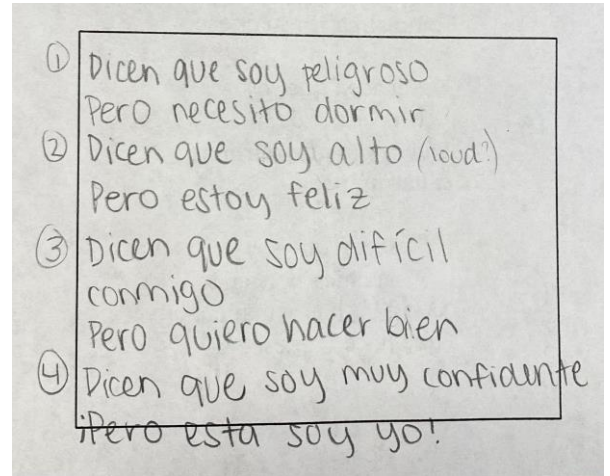 ① Dicen que soy peligroso
Pero necesito dormir
② Dicen que soy alto (loud?)
Pero estoy feliz
③ Dicen que soy difícil
conmigo
Pero quiero hacer bien
④ Dicen que soy muy confidente
¡Pero esta soy yo!